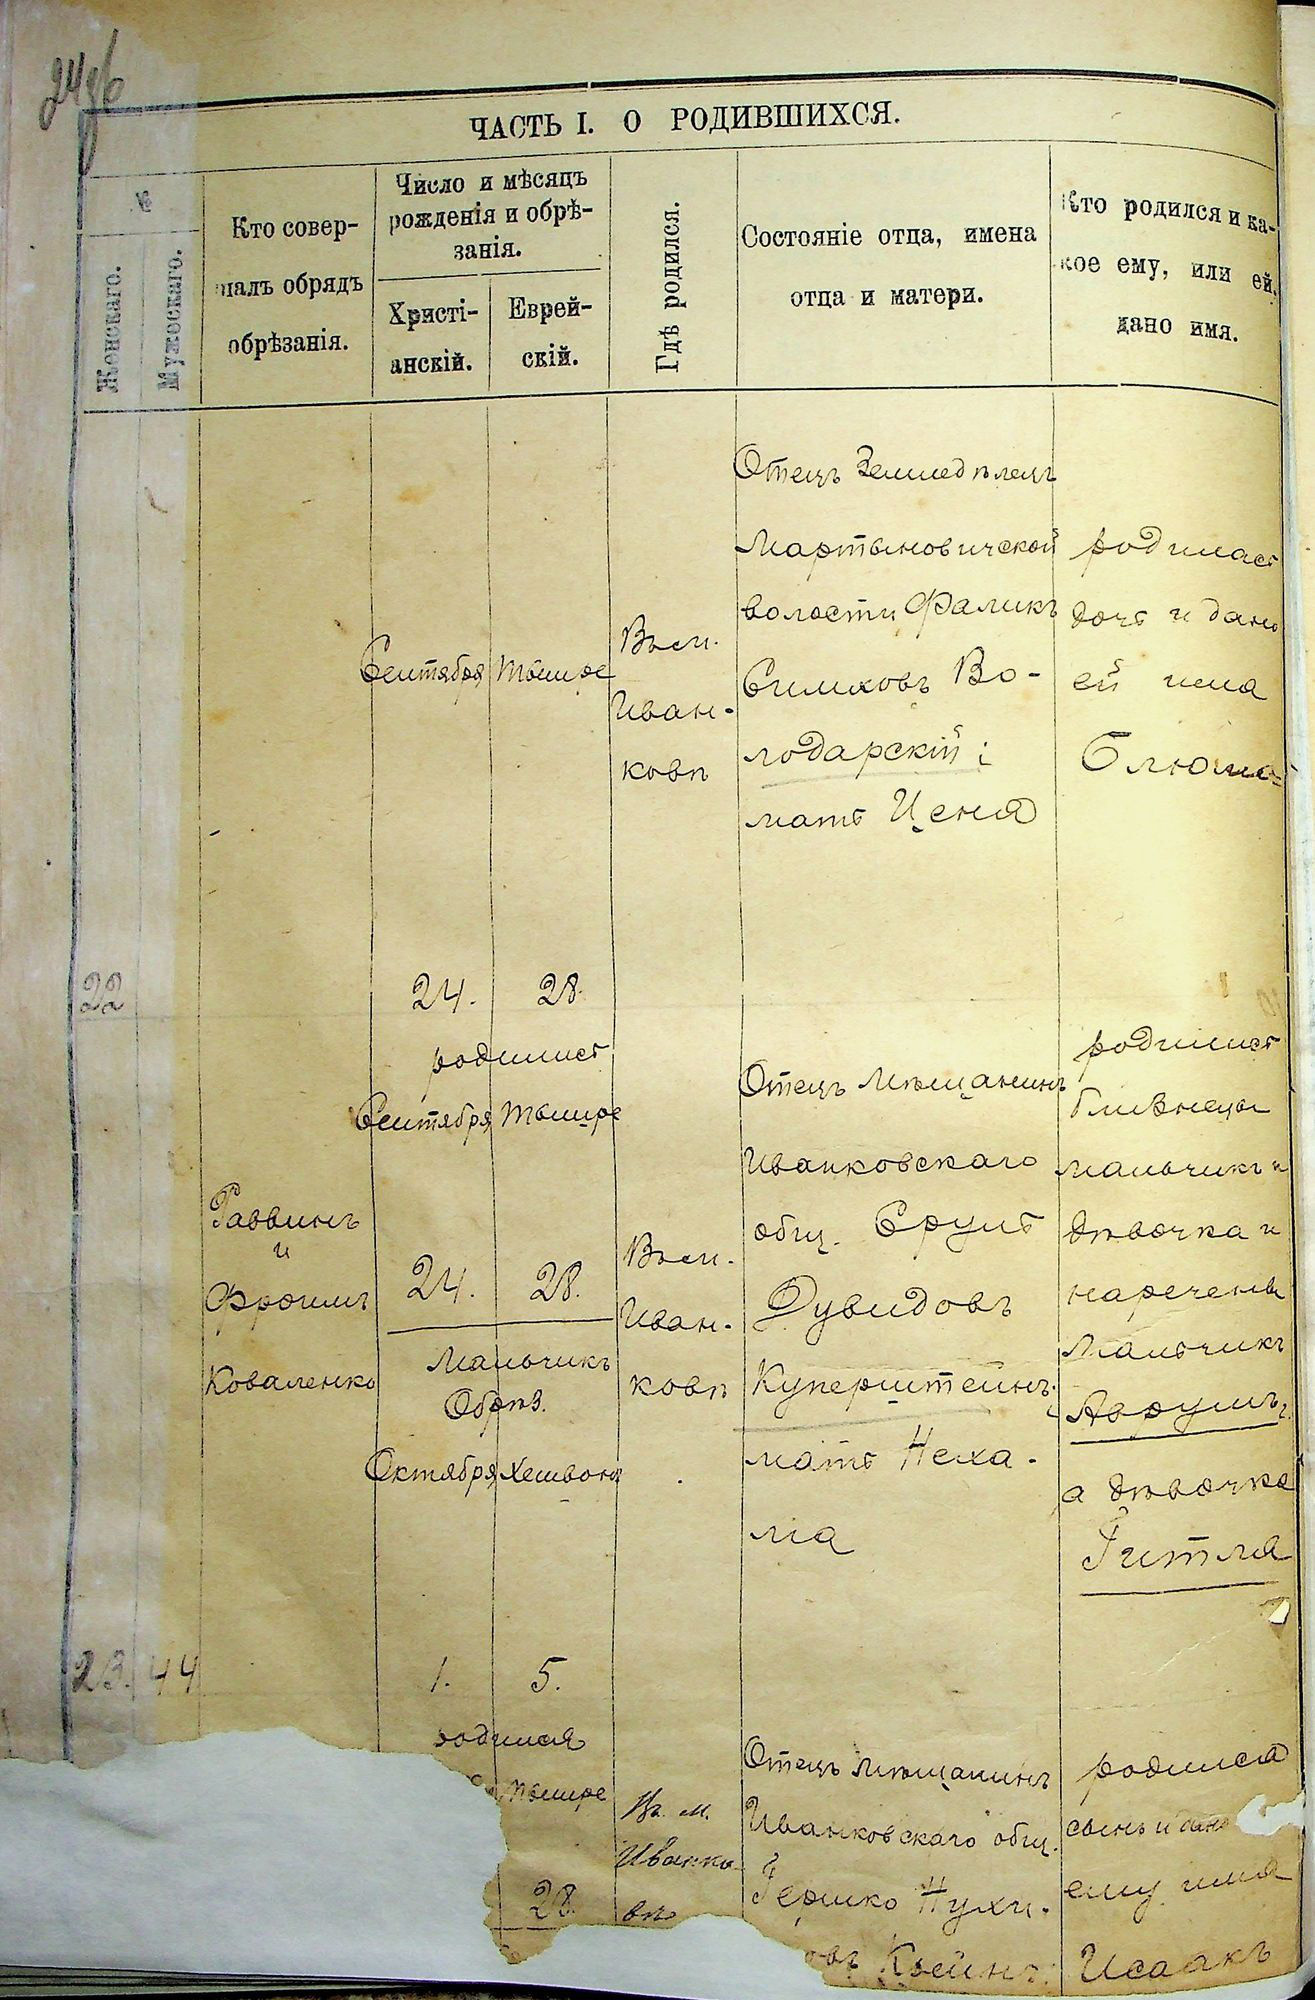 ЧАСТЬ I. О РОДИВШИХСЯ.
№
Женскаго.
Мужескаго.
Кто совер-
шалъ обрядъ
обрѣзанія.
Число и мѣсяцъ
рожденія и обрѣ-
занія.
Христі-
анскій.
Еврей-
скій.
Гдѣ родился.
Состояніе отца, имена
отца и матери.
Кто родился и ка-
кое ему, или ей,
дано имя.
Сентября Тышре
Въ м.
Иван-
ковѣ
Отецъ Земледѣлецъ
Мартыновичской
волости Фаликъ
Симховъ Во-
лодарскій;
мать Ценя
родилась
дочь и дано
ей имя
Блюма
22
24. 28.
родились
Сентября Тышре
24. 28.
Мальчикъ
Обрѣз.
Октября Хешвона
Раввинъ
и
Фроимъ
Коваленко
Въ м.
Иван-
ковѣ
Отецъ Мѣщанинъ
Иванковскаго
общ. Сруль
Дувидовъ
Куперштейнъ;
мать Неха-
ма
родились
близнецы
мальчикъ и
дѣвочка и
наречены
Мальчикъ
Аврумъ,
а дѣвочка
Гитля
23. 44
1. 5.
родился
Тышре
28.
Въ м.
Иванко-
вѣ
Отецъ мѣщанинъ
Иванковскаго общ.
Гершко Нухи-
овъ
родился
сынъ и дано
ему имя
Исаакъ